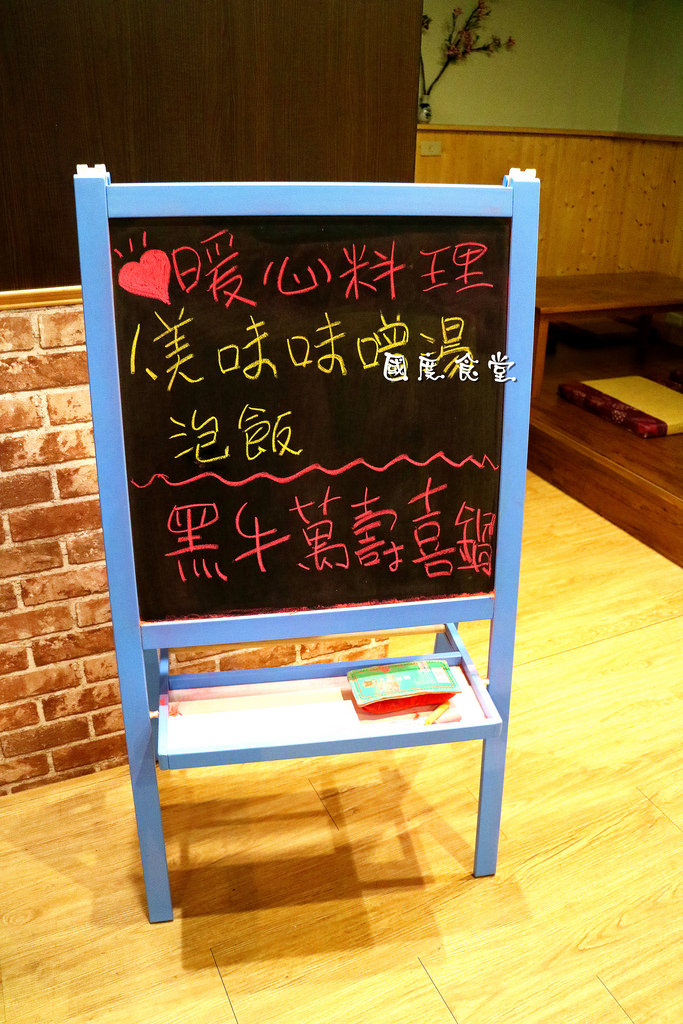 暖心料理
僙味味噌湯
國度食堂
泡飯
黑牛萬壽喜鍋